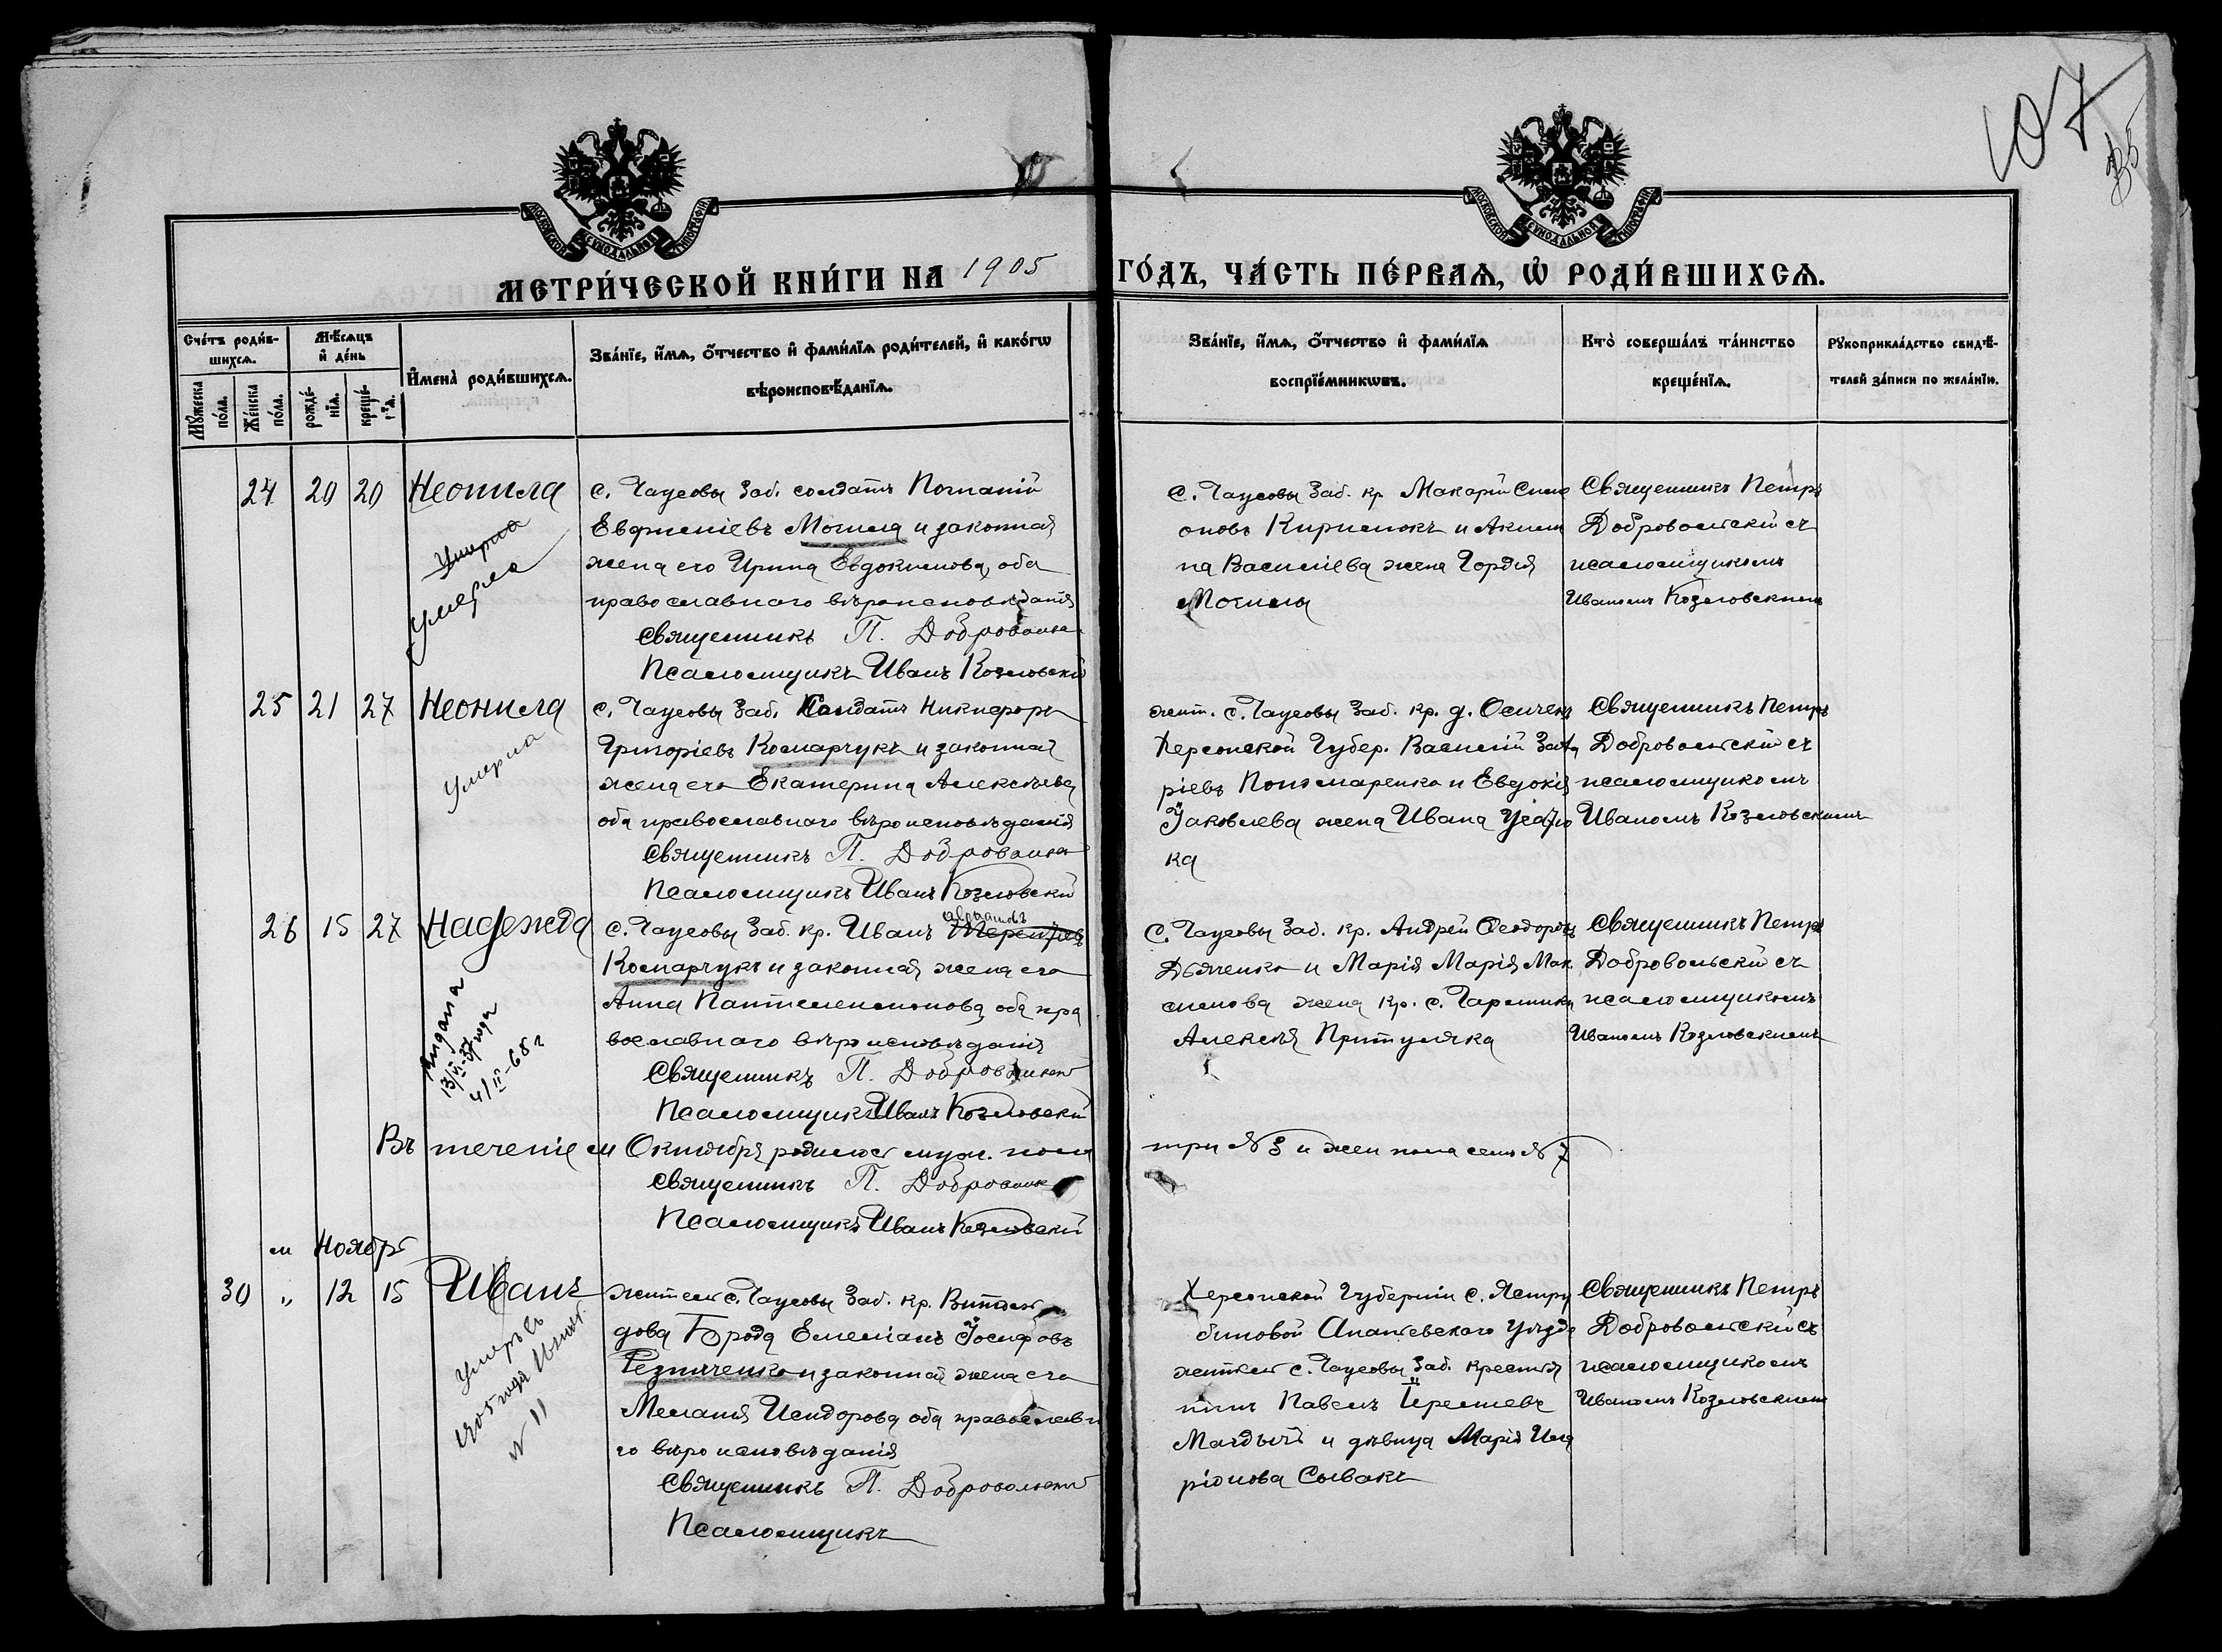 107
МОСКОВСКОЙ СУНОДАЛЬНОЙ ТИПОГРАФІИ
МОСКОВСКОЙ СУНОДАЛЬНОЙ ТИПОГРАФІИ
МЕТРИ́ЧЕСКОЙ КНИ́ГИ НА 1905 ГО́ДЪ, ЧА́СТЬ ПЕ́РВАѦ, Ѡ҆ РОДИ́ВШИХСѦ.
Сче́тъ роди́в-
шихсѧ.
Мѣ́сѧцъ
и҆ де́нь
И҆мена̀ роди́вшихсѧ.
Зва́нїе, и҆́мѧ, ѻ҆́тчество и҆ фами́лїѧ роди́телей, и҆ како́гѡ
вѣроисповѣ́данїѧ.
Зва́нїе, и҆́мѧ, ѻ҆́тчество и҆ фами́лїѧ
воспрїе́мникѡвъ.
Кто̀ соверша́лъ та́инство
креще́нїѧ.
Рꙋкоприкла́дство свидѣ́-
телей за́писи по жела́нїю.
Мꙋ́жеска
по́ла.
Же́нска
по́ла.
рожде́-
нїѧ.
креще́-
нїѧ.
24 20 20 Неонила
Умерла
Умерла
с. Чаусовы Заб. солдатъ Потапій
Евфиміевъ Могила и законная
жена его Ирина Евдокимова, оба
православнаго вѣроисповѣданія
Священникъ П. Добровольск
Псаломщикъ Иванъ Козловскій
с. Чаусовы Заб. кр. Макарій Сими
оновъ Кирилюкъ и Акили
на Василіева жена Гордія
Могилы
Священникъ Петръ
Добровольскій съ
псаломщикомъ
Иваномъ Козловскимъ
25 21 27 Неонила
Умерла
с. Чаусовы Заб. Солдатъ Никифоръ
Григоріевъ Комарчукъ и законная
жена его Екатерина Алексѣева
оба православнаго вѣроисповѣданія
Священникъ П. Добровольск
Псаломщикъ Иванъ Козловскій
жит. с. Чаусовы Заб. кр. д. Осички
Херсонской Губер. Василій
ріевъ Пономаренко и Евдокія
Іаковлева жена Ивана
ка
Священникъ Петръ
Добровольскій съ
псаломщикомъ
Иваномъ Козловскимъ
26 15 27 Надежда
13/VI-37 года
4/II-68 г
с. Чаусовы Заб. кр. Иванъ
Комарчукъ и законная жена его
Анна Пантелеимонова, оба пра
вославнаго вѣроисповѣданія
Священникъ П. Добровольск
Псаломщикъ Иванъ Козловскій
с. Чаусовы Заб. кр. Андрей Ѳеодоровъ
Дьяченко и Марія Марія Мак
симова жена кр. с.
Алексѣя Притуляка
Священникъ Петръ
Добровольскій съ
псаломщикомъ
Иваномъ Козловскимъ
Въ теченіе м Октября родилось муж. пола три № 3 и жен пола семь № 7
Священникъ П. Добровольск
Псаломщикъ Иванъ Козловскій
м Ноябрь
30 „ 12 15 Иванъ
Умеръ
1905 года
№ 11
жители с. Чаусовы Заб. кр.
дова Брода Емеліанъ Іосифовъ
Резниченко и законная жена его
Меланія Исидорова оба православна
го вѣроисповѣданія
Священникъ П. Добровольскій
Псаломщикъ
Херсонской Губерніи с. Ястре
биновой Ананьевскаго Уѣзда
жители с. Чаусовы II Заб. крестья
нинъ Павелъ Терентіевъ
и дѣвица Марія Ила
ріонова Сывакъ
Священникъ Петръ
Добровольскій съ
псаломщикомъ
Иваномъ Козловскимъ